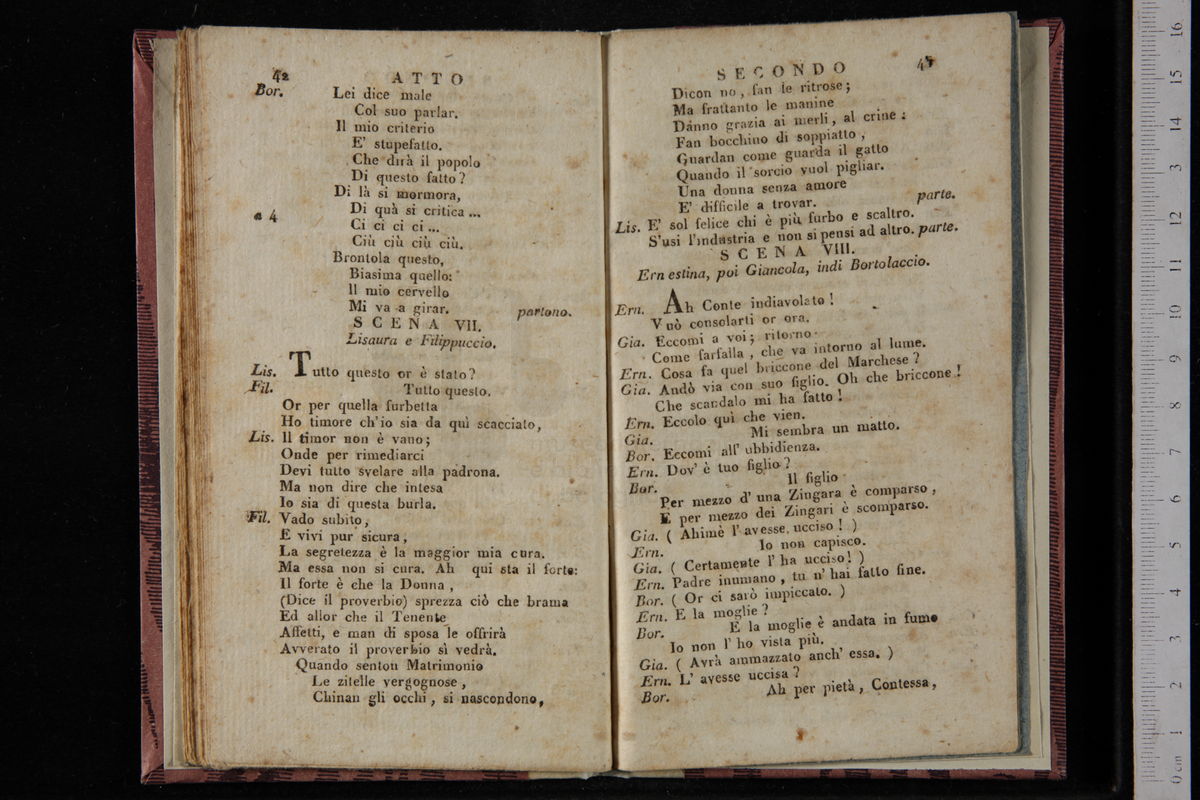 42
ATTO
Bor. Lei dice male
Col suo parlar.
Il mio criterio
E' stupefatto.
Che dirà il popolo
Di questo fatto?
Di là si mormora,
a 4 Di quà si critica ...
Ci ci ci ci ...
Ciù ciù ciù ciù.
Brontola questo,
Biasima quello:
Il mio cervello
Mi va a girar. partono.
SCENA VII.
Lisaura e Filippuccio.
Lis. Tutto questo or è stato?
Fil. Tutto questo.
Or per quella furbetta
Ho timore ch'io sia da quì scacciato,
Lis. Il timor non è vano;
Onde per rimediarci
Devi tutto svelare alla padrona.
Ma non dire che intesa
Io sia di questa burla.
Fil. Vado subito,
E vivi pur sicura,
La segretezza è la maggior mia cura.
Ma essa non si cura. Ah qui sta il forte:
Il forte è che la Donna,
(Dice il proverbio) sprezza ciò che brama
Ed allor che il Tenente
Affetti, e man di sposa le offrirà
Avverato il proverbio sì vedrà.
Quando senton Matrimonio
Le zitelle vergognose,
Chinan gli occhi, si nascondono,
SECONDO
Dicon no, fan le ritrose;
Ma frattanto le manine
Dànno grazia ai merli, al crine:
Fan bocchino di soppiatto,
Guardan come guarda il gatto
Quando il sorcio vuol pigliar.
Una donna senza amore
E' difficile a trovar. parte.
Lis. E' sol felice chi è più furbo e scaltro.
S'usi l'industria e non si pensi ad altro. parte.
SCENA VIII.
Ernestina, poi Giancola, indi Bortolaccio.
Ern. Ah Conte indiavolato!
Vuò consolarti or ora.
Gia. Eccomi a voi; ritorno
Come farfalla, che va intorno al lume.
Ern. Cosa fa quel briccone del Marchese?
Gia. Andò via con suo figlio. Oh che briccone!
Che scandalo mi ha fatto!
Ern. Eccolo quì che vien.
Gia. Mi sembra un matto.
Bor. Eccomi all' ubbidienza.
Ern. Dov' è tuo figlio?
Bor. Il figlio
Per mezzo d' una Zingara è comparso,
E per mezzo dei Zingari è scomparso.
Gia. ( Ahimè l' avesse ucciso! )
Ern. Io non capisco.
Gia. ( Certamente l' ha ucciso! )
Ern. Padre inumano, tu n' hai fatto fine.
Bor. ( Or ci sarò impiccato. )
Ern. E la moglie?
Bor. E la moglie è andata in fumo
Io non l' ho vista più.
Gia. ( Avrà ammazzato anch' essa. )
Ern. L' avesse uccisa?
Bor. Ah per pietà, Contessa,
0 cm 1 2 3 4 5 6 7 8 9 10 11 12 13 14 15 16